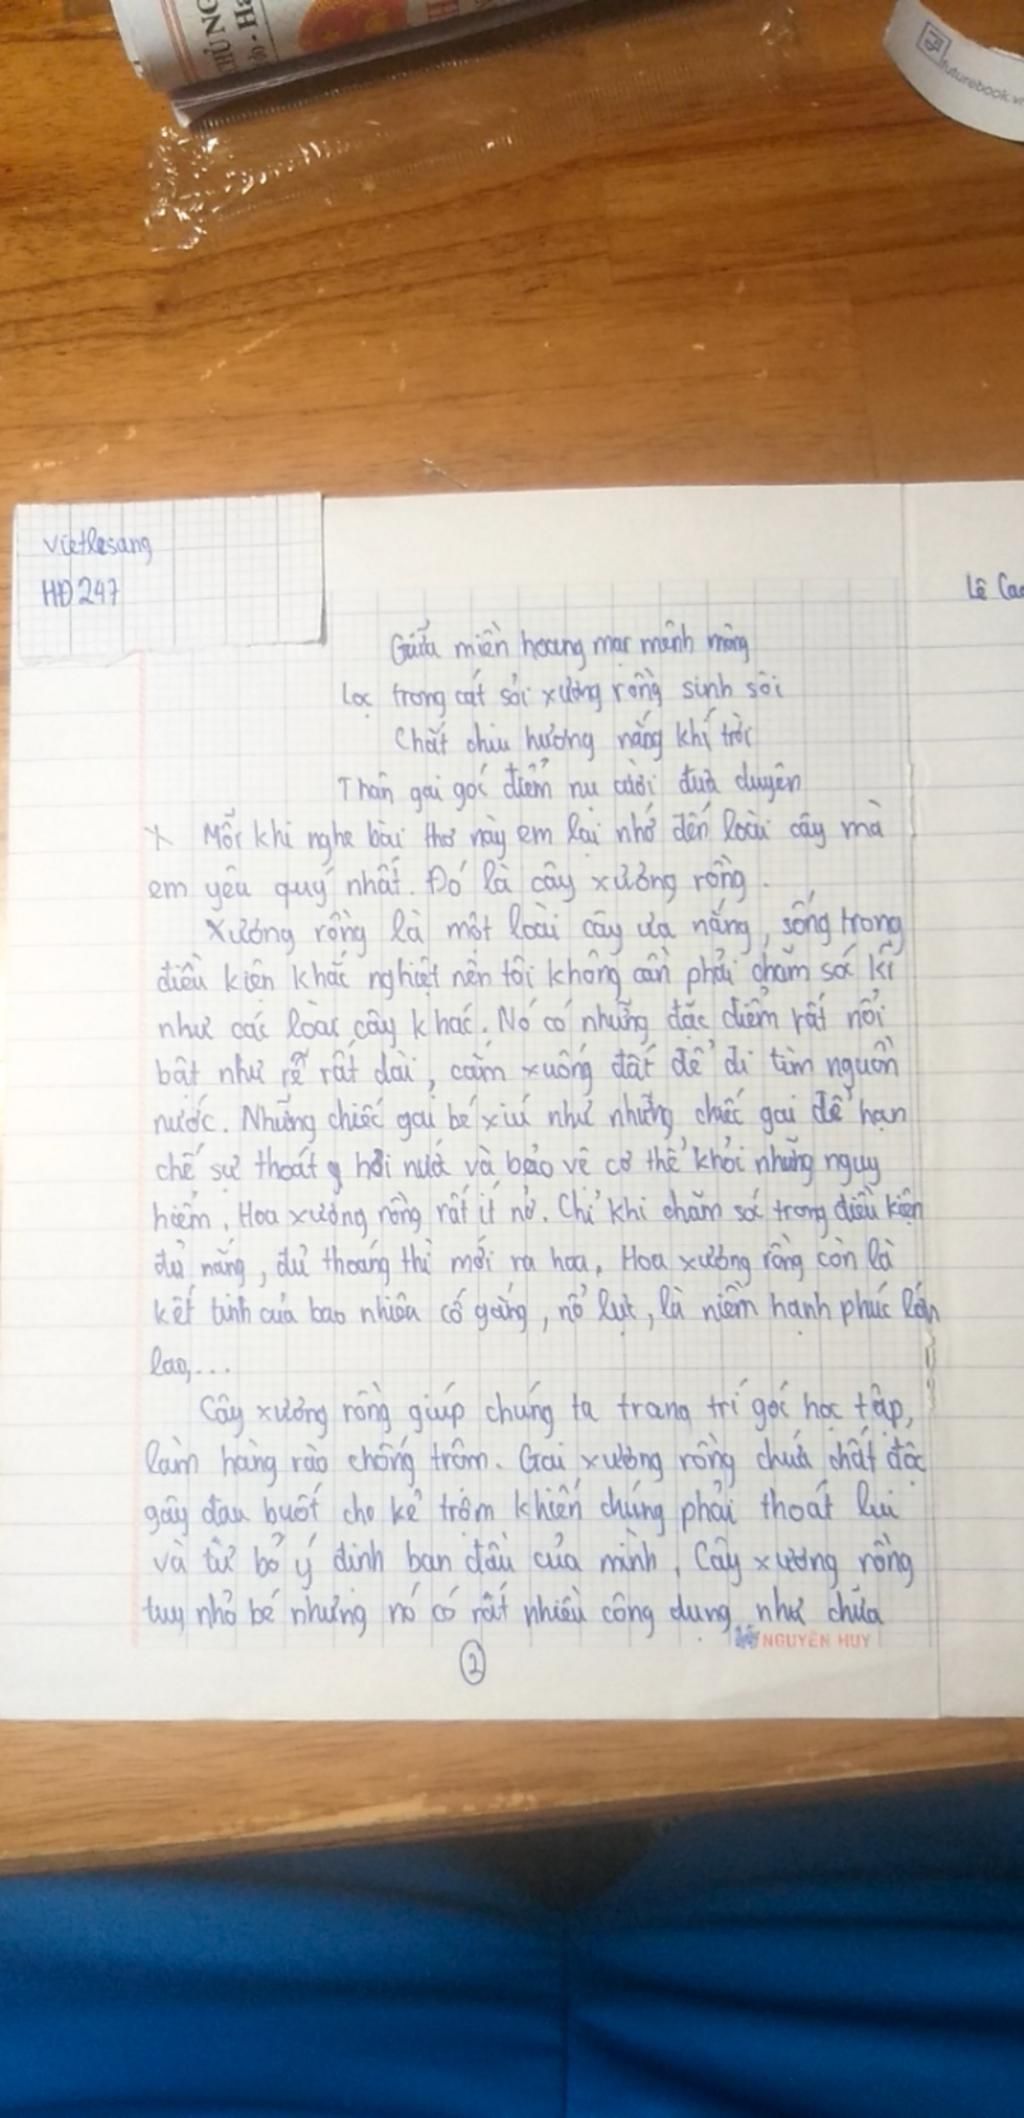 HỨNG
futurebook.vn
vietlesang
HĐ 247
Lê Cao
Giữa miền hoang mạc mênh mông
Lọc trong cát sỏi xương rồng sinh sôi
Chắt chiu hương nắng khí trời
Thân gai góc điểm nụ cười đưa duyên
Mỗi khi nghe bài thơ này em lại nhớ đến loài cây mà
em yêu quý nhất. Đó là cây xương rồng.
Xương rồng là một loài cây ưa nắng, sống trong
điều kiện khắc nghiệt nên tôi không cần phải chăm sóc kĩ
như các loài cây khác. Nó có những đặc điểm rất nổi
bật như rễ rất dài, cắm xuống đất để đi tìm nguồn
nước. Những chiếc gai bé xíu như những chiếc gai để hạn
chế sự thoát hơi nước và bảo vệ cơ thể khỏi những nguy
hiểm. Hoa xương rồng rất ít nở. Chỉ khi chăm sóc trong điều kiện
đủ nắng, đủ thoáng thì mới ra hoa. Hoa xương rồng còn là
kết tinh của bao nhiêu cố gắng, nỗ lực, là niềm hạnh phúc lớn
lao,...
Cây xương rồng giúp chúng ta trang trí góc học tập,
làm hàng rào chống trộm. Gai xương rồng chứa chất độc
gây đau buốt cho kẻ trộm khiến chúng phải thoát lui
và từ bỏ ý định ban đầu của mình. Cây xương rồng
tuy nhỏ bé nhưng nó có rất nhiều công dụng như chữa
NGUYÊN HUY
2